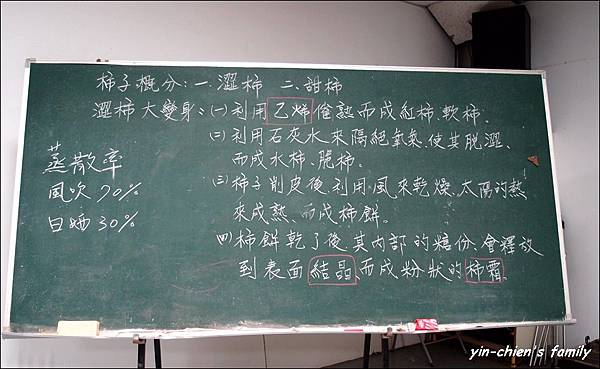 柿子概分:一.澀柿 二.甜柿
澀柿大變身:(一)利用乙烯催熟而成紅柿、軟柿.
(二)利用石灰水來隔絕氧氣、使其脫澀、
而成水柿、脆柿.
(三)柿子削皮後利用風來乾燥、太陽的熱
來成熟、而成柿餅.
(四)柿餅乾了後其內部的糖份、會釋放
到表面結晶、而成粉狀的柿霜.
蒸散率
風吹70%
日晒30%
yin-chien's family